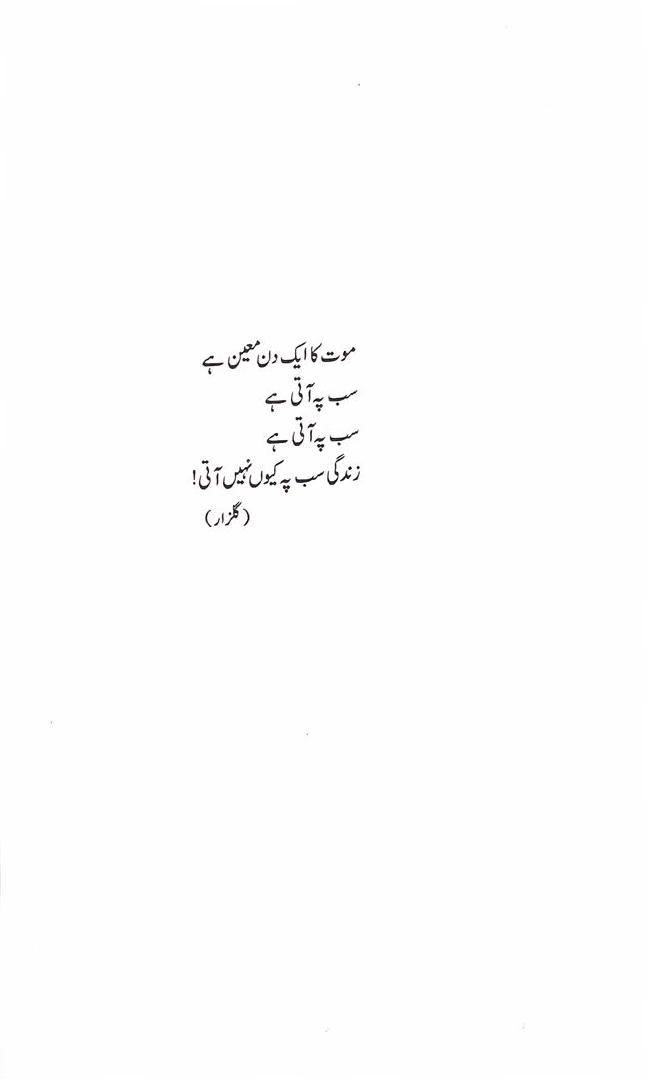 موت کا ایک دن معین ہے
سب پہ آتی ہے
سب پہ آتی ہے
زندگی سب پہ کیوں نہیں آتی!
(گلزار)